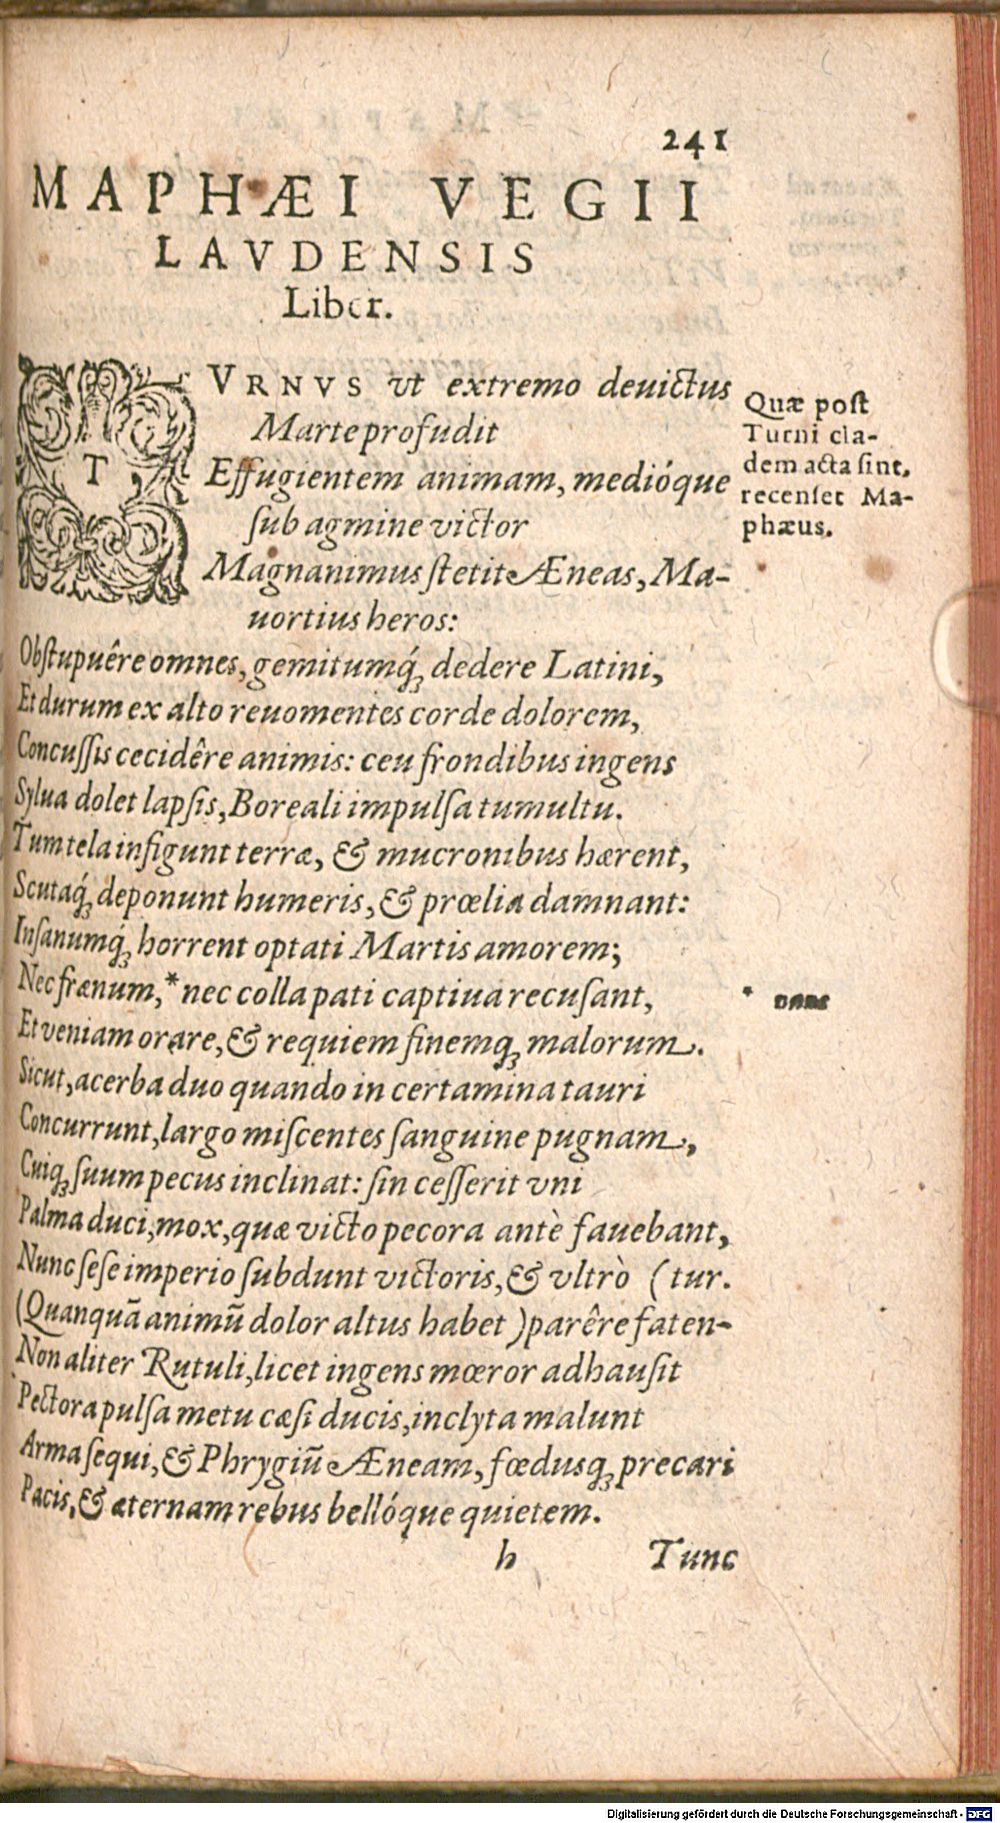 241
MAPHÆI VEGII
LAVDENSIS
Liber.
TVRNVS vt extremo deuictus
Marte profudit
Effugientem animam, medióque
sub agmine victor
Magnanimus stetit Æneas, Ma-
uortius heros:
Quæ post
Turni cla-
dem acta sint,
recenset Ma-
phæus.
Obstupuêre omnes, gemitumq́; dedere Latini,
Et durum ex alto reuomentes corde dolorem,
Concussis cecidêre animis: ceu frondibus ingens
Sylua dolet lapsis, Boreali impulsa tumultu.
Tum tela infigunt terræ, & mucronibus hærent,
Scutaq́; deponunt humeris, & prœlia damnant:
Insanumq́; horrent optati Martis amorem;
Nec frænum,* nec colla pati captiua recusant,
*
Et veniam orare, & requiem finemq; malorum.
Sicut, acerba duo quando in certamina tauri
Concurrunt, largo miscentes sanguine pugnam,
Cuiq; suum pecus inclinat: sin cesserit vni
Palma duci, mox, quæ victo pecora antè fauebant,
Nunc sese imperio subdunt victoris, & vltrò (tur.
(Quanquā animū dolor altus habet) parêre faten-
Non aliter Rutuli, licet ingens mœror adhausit
Pectora pulsa metu cæsi ducis, inclyta malunt
Arma sequi, & Phrygiū Æneam, fœdusq; precari
Pacis, & æternam rebus bellóque quietem.
h Tunc
Digitalisierung gefördert durch die Deutsche Forschungsgemeinschaft - DFG